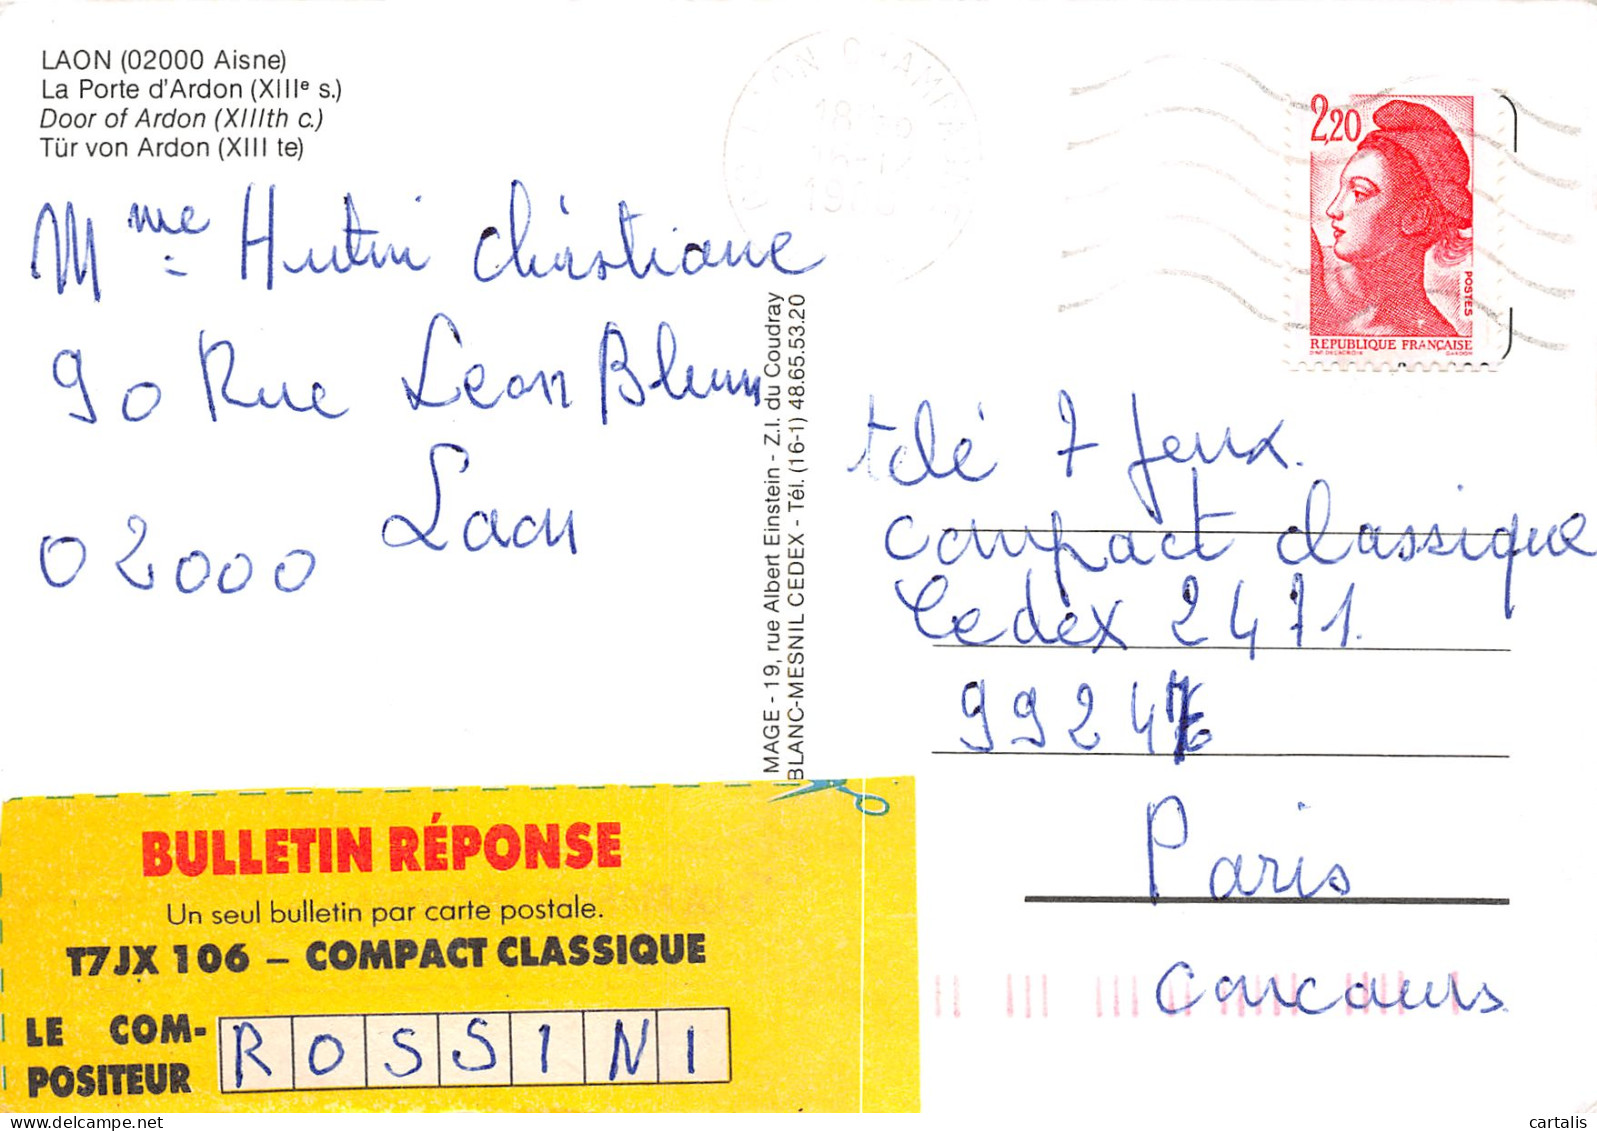 LAON (02000 Aisne)
La Porte d'Ardon (XIIIe s.)
Door of Ardon (XIIIth c.)
Tür von Ardon (XIII te)
Mme Hutin Christiane
90 Rue Leon Blum
02000 Laon
MAGE - 19, rue Albert Einstein - Z.I. du Coudray
BLANC-MESNIL CEDEX - Tél. (16-1) 48.65.53.20
2,20
POSTES
REPUBLIQUE FRANÇAISE
télé 7 Jeux.
compact classique
Cedex 2471.
9924
Paris
Concours
BULLETIN RÉPONSE
Un seul bulletin par carte postale.
T7JX 106 – COMPACT CLASSIQUE
LE COM-
POSITEUR
ROSSINI
cartalis